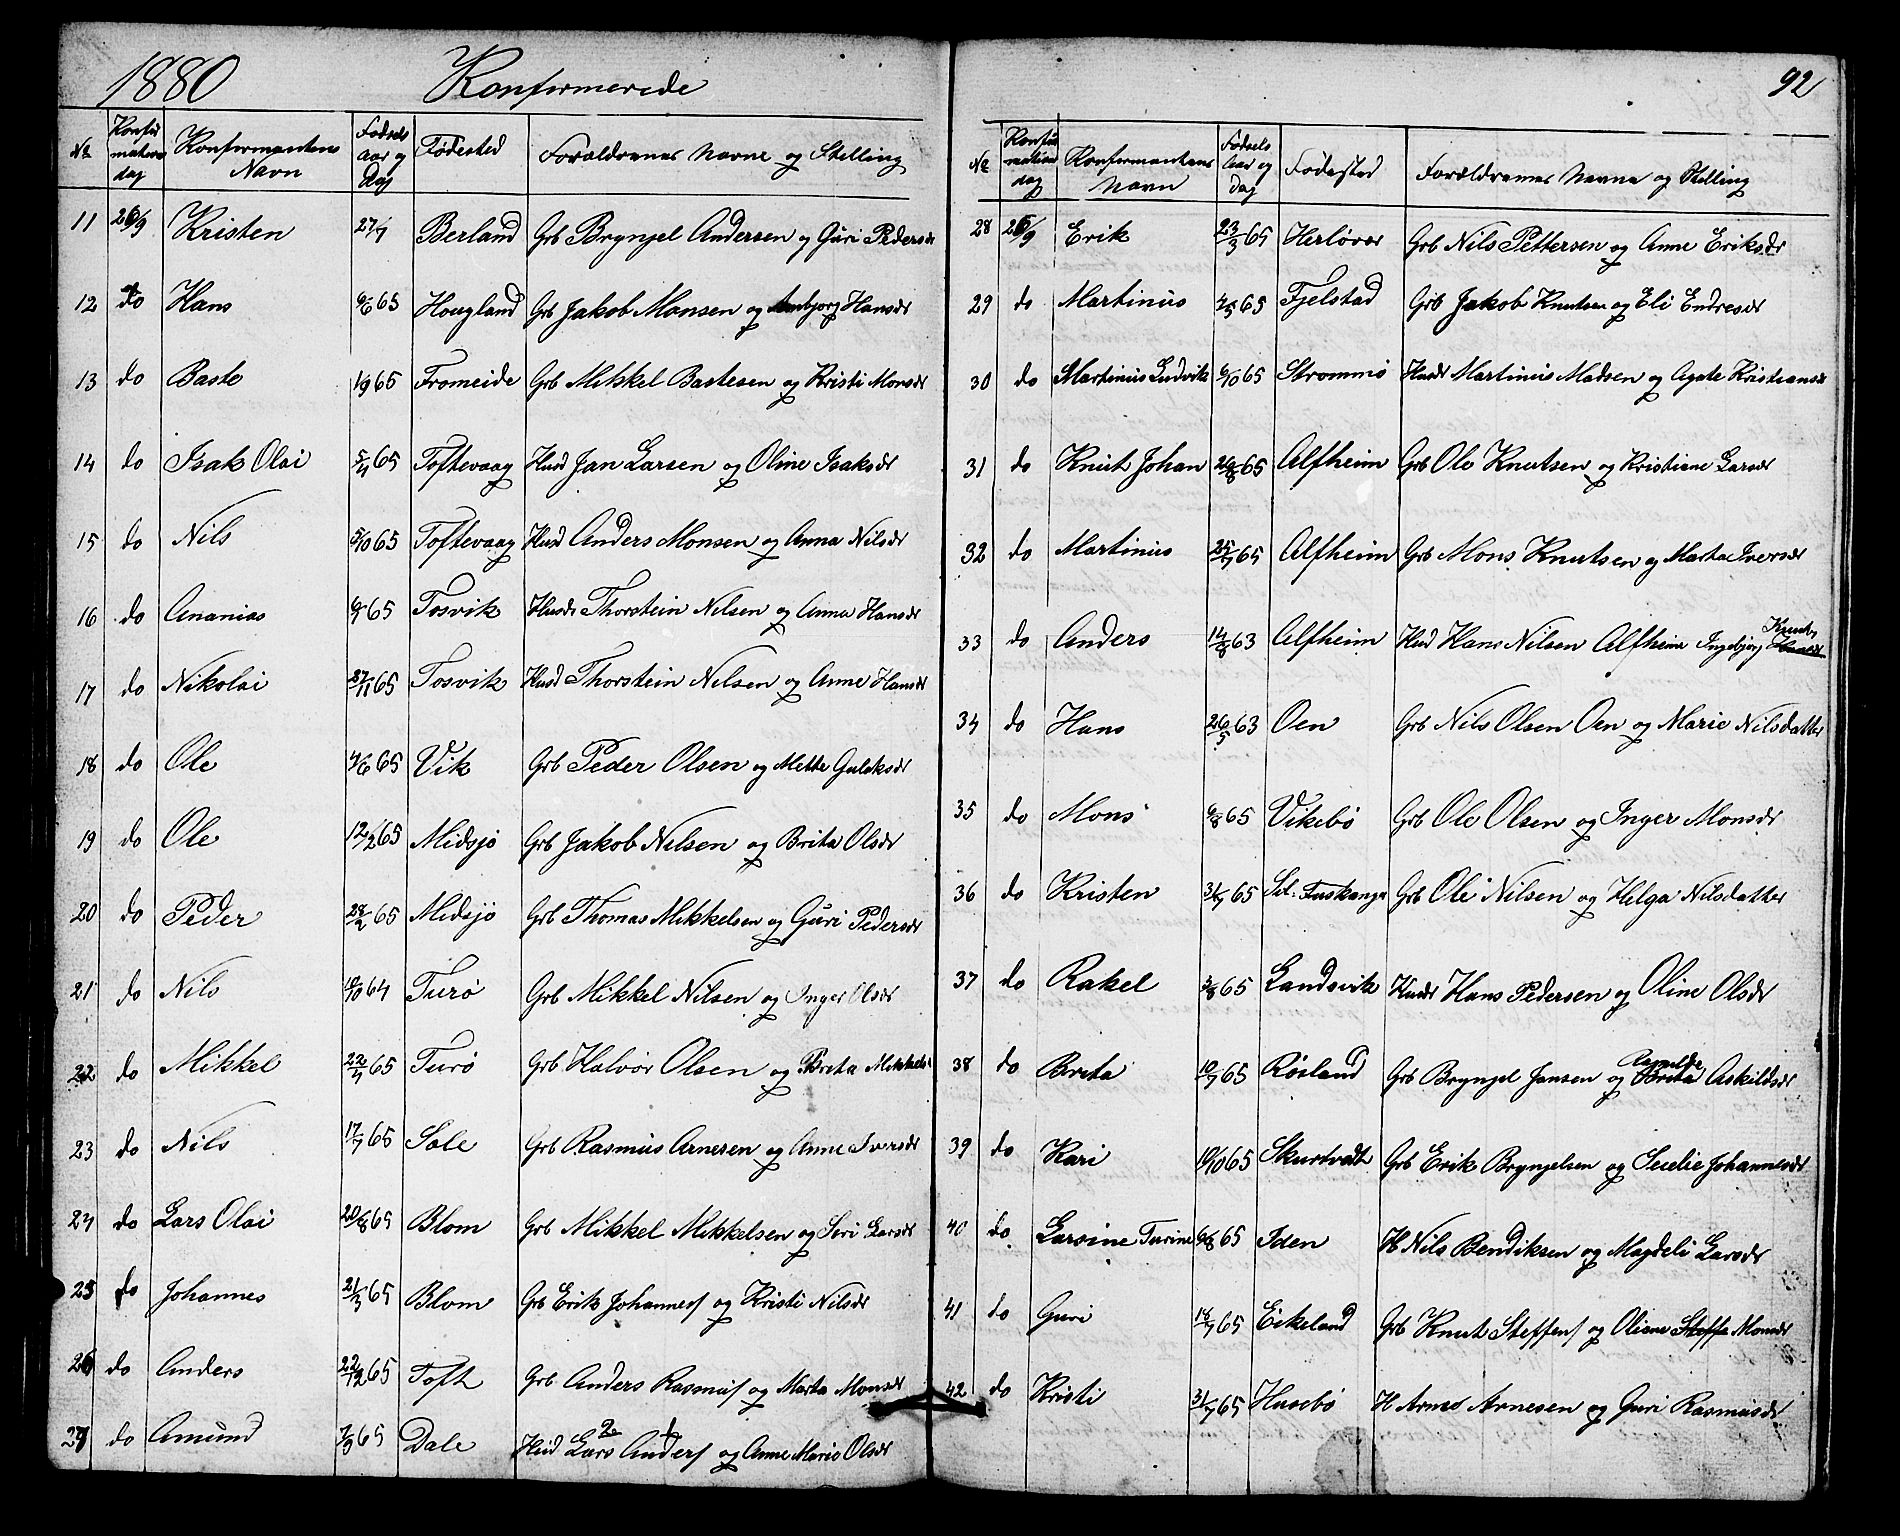 1880 Konfirmerede
No Konfirmations dag Konfirmantens Navn Fødsels aar og Dag Fødested Forældrenes Navne og Stilling
11 26/9 Kristen 27/7 Berland Grb Brynjel Andersen og Guri Pedersdr
12 do Hans 9/6 65 Hougland Grb Jakob Monsen og Hansdr
13 do Baste 1/9 65 Fromeide Grb Mikkel Bastesen og Kristi Monsdr
14 do Isak Olai 65 Toftevaag Husd Jan Larsen og Oline Isaksdr
15 do Nils 5/10 65 Toftevaag Husd Anders Monsen og Anna Nilsdr
16 do Ananias 65 Tosvik Husds Thorstein Nilsen og Anna Hansdr
17 do Nikolai 27/11 65 Tosvik Husd Thorstein Nilsen og Anne Hansdr
18 do Ole 4/6 65 Vik Grb Peder Olsen og Mette Gulaksdr
19 do Ole 12/2 65 Midsjo Grb Jakob Nilsen og Brita Olsdr
20 do Peder 28/2 65 Midsjo Grb Thomas Mikkelsen og Guri Pedersdr
21 do Nils 10/10 64 Turø Grb Mikkel Nilsen og Inger Olsdr
22 do Mikkel 22/7 65 Turø Grb Halvor Olsen og Brita Mikkelsd
23 do Nils 17/7 65 Sole Grb Rasmus Arnesen og Anne Iversdr
24 do Lars Olai 20/8 65 Blom Grb Mikkel Mikkelsen og Siri Larsdr
25 do Johannes 21/3 65 Blom Grb Erik Johannes og Kristi Nilsdr
26 do Anders 22/12 65 Toft Grb Anders Rasmus og Marta Monsdr
27 do Amund 7/9 65 Dale Husd Lars Anders og Anne Marie Olsdr
92
No Konfirmation dag Konfirmantens Navn Fødsels Aar og dag Fødested Forældrenes Navne og Stilling
28 26/9 Erik 23/3 65 Herløver Grb Nils Pettersen og Anne Eriksdr
29 do Martinus 65 Fjelstad Grb Jakob Knutsen og Eli Endresdr
30 do Martinus Ludvik 6/10 65 Strømmø Husdr Martinus Madsen og Agate Kristiansdr
31 do Knut Johan 26/8 65 Alfheim Grb Ole Knutsen og Kristiane Larsdr
32 do Martinus 25/7 65 Alfheim Grb Mons Knutsen og Marta Iversdr
33 do Anders 14/8 63 Alfheim Husd Hans Nilsen Alfheim Ingebjorg Knuts
34 do Hans 26/5 63 Oen Grb Nils Olsen Oen og Marie Nilsdatter
35 do Mons 9/8 65 Vikebø Grb Ole Olsen og Inger Monsdr
36 do Kristen 31/7 65 Sil: Tuskanga Grb Ole Nilsen og Helga Nilsdatter
37 do Rakel 3/8 65 Landsvik Husdr Hans Pedersen og Oline Olsdr
38 do Brita 10/7 65 Røsland Grb Brynjel Jansen og Brita Askildsdr
39 do Kari 10/10 65 Skurtvedt Grb Erik Brynjelsen og Secelie Johannesdr
40 do Larsine Turine 65 Iden H Nils Bendiksen og Magdeli Larsdr
41 do Guri 18/7 65 Eikeland Grb Knut Steffens og Oliane Steffe Monsdr
42 do Kristi 31/7 65 Husebø H Arne Arnesen og Guri Rasmusdr